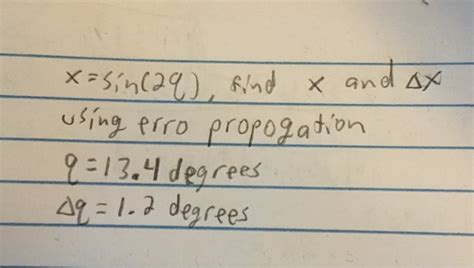 x=sin(2q), find x and Δx
using erro propogation
q=13.4 degrees
Δq=1.2 degrees